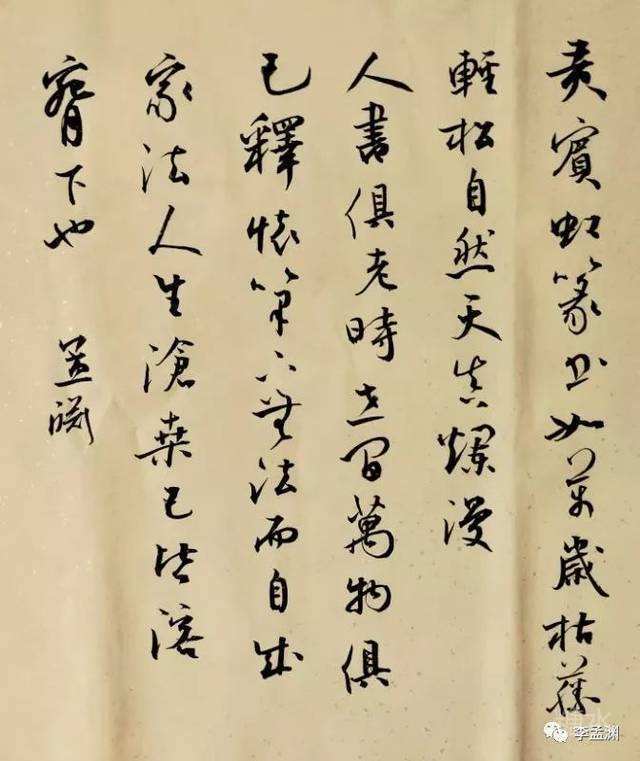 黄賓虹篆书如万歲枯藤
輕松自然天真爛漫
人書俱老時世间萬物俱
已釋懷筆下無法而自成
家法人生滄桑已皆溶
腕下也 孟渊
李孟渊